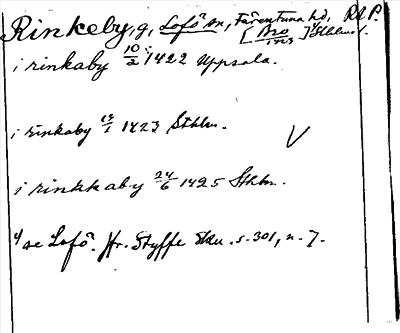 Rinkeby, g, Lofö sn, Färentuna hd, RAP.
[Bro 1423] Sthlms l.
i rinkaby 10/2 1422 Uppsala.
i rinkaby 13/1 1423 Sthlm.
V
i rinkkaby 24/6 1425 Sthlm.
4) se Lofö. Jfr. Styffe Sku. s. 301, n. 7.